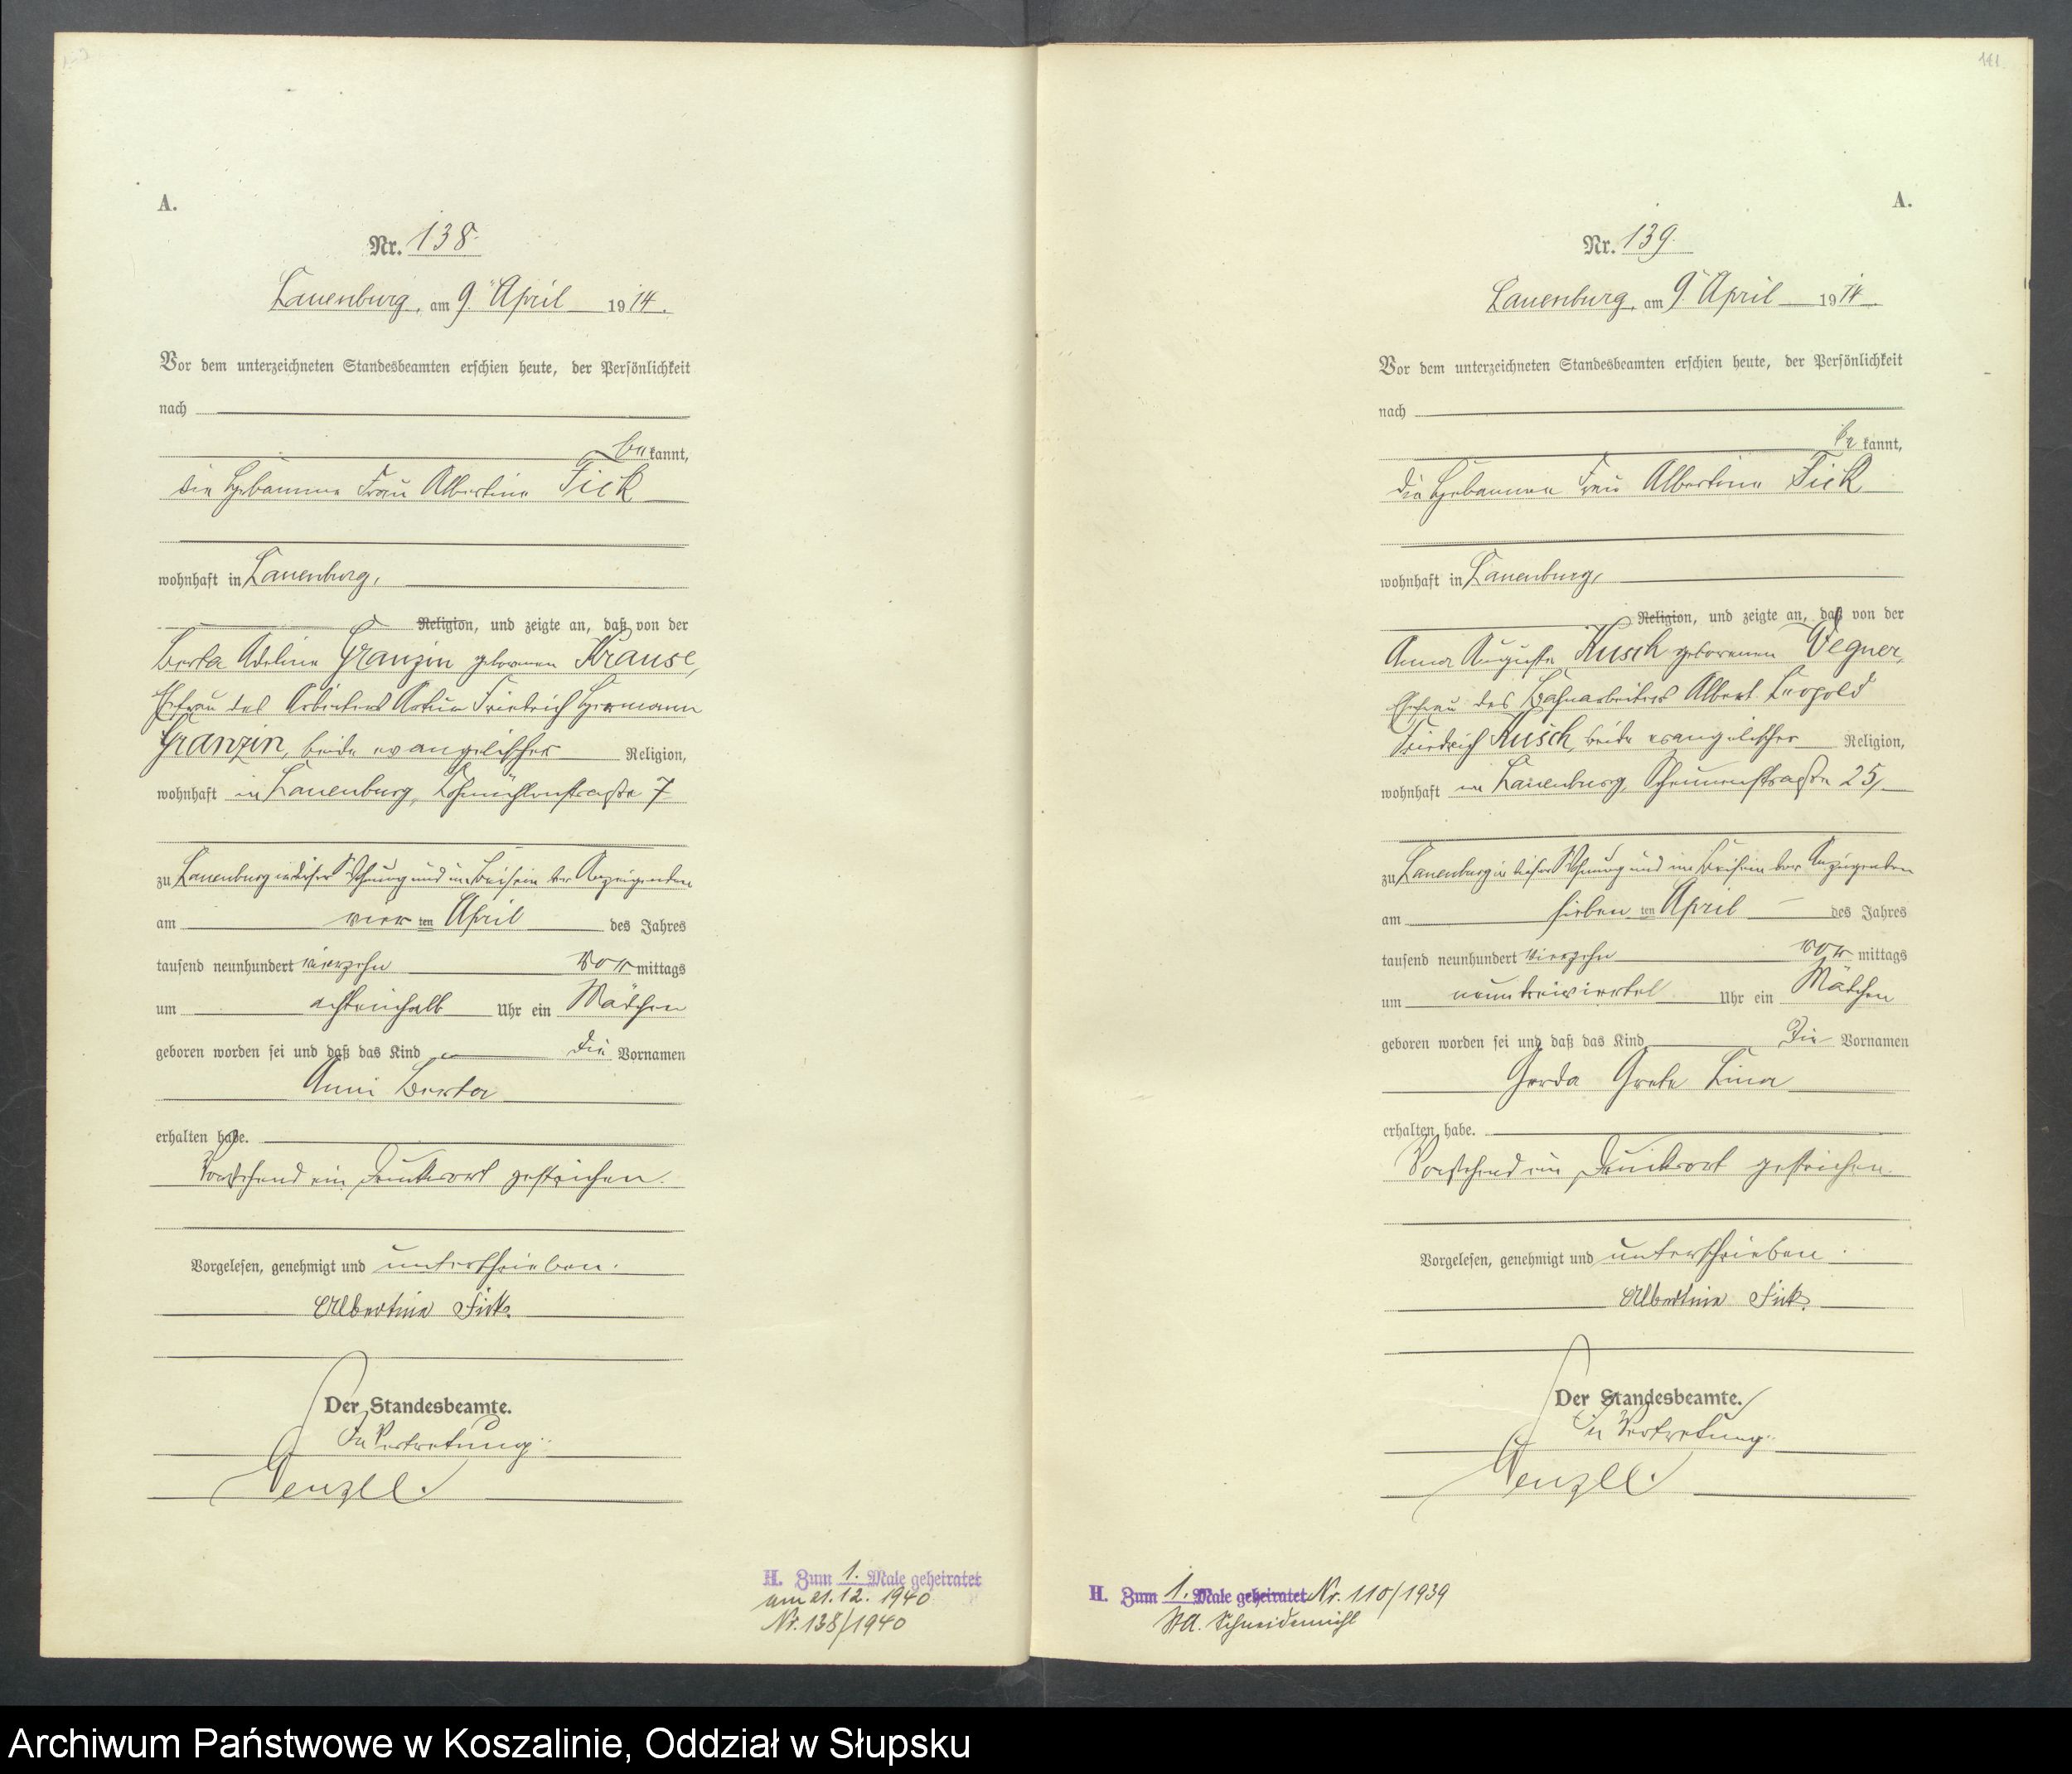 A.
Nr. 138.
Lauenburg, am 9. April 1914.
Vor dem unterzeichneten Standesbeamten erschien heute, der Persönlichkeit
nach
be kannt,
die Hebamme Frau Albertine Fick
wohnhaft in Lauenburg,
Religion, und zeigte an, daß von der
Berta Adeline Granzin geborenen Krause,
Ehefrau des Arbeiters Artur Friedrich Hermann
Granzin, beide evangelischer Religion,
wohnhaft in Lauenburg, Lohmühlenstraße 7
zu Lauenburg in dieser Wohnung und im Beisein der Anzeigenden
am vier ten April des Jahres
tausend neunhundert vierzehn vor mittags
um achteinhalb Uhr ein Mädchen
geboren worden sei und daß das Kind die Vornamen
Anni Berta
erhalten habe.
Vorstehend ein Druckwort gestrichen.
Vorgelesen, genehmigt und unterschrieben.
Albertine Fick.
Der Standesbeamte.
In Vertretung:
Wenzel.
H. Zum 1. Male geheiratet
am 21.12.1940
Nr. 138/1940
141
A.
Nr. 139.
Lauenburg, am 9. April 1914.
Vor dem unterzeichneten Standesbeamten erschien heute, der Persönlichkeit
nach
be kannt,
die Hebamme Frau Albertine Fick
wohnhaft in Lauenburg,
Religion, und zeigte an, daß von der
Anna Auguste Kusch geborenen Wegner,
Ehefrau des Bahnarbeiters Albert Leopold
Friedrich Kusch, beide evangelischer Religion,
wohnhaft in Lauenburg, Scheunenstraße 25,
zu Lauenburg in dieser Wohnung und im Beisein der Anzeigenden
am sieben ten April des Jahres
tausend neunhundert vierzehn vor mittags
um neundreiviertel Uhr ein Mädchen
geboren worden sei und daß das Kind die Vornamen
Gerda Grete Lina
erhalten habe.
Vorstehend ein Druckwort gestrichen.
Vorgelesen, genehmigt und unterschrieben.
Albertine Fick.
Der Standesbeamte.
In Vertretung:
Wenzel.
H. Zum 1. Male geheiratet Nr. 110/1939
StA. Schneidemühl
Archiwum Państwowe w Koszalinie, Oddział w Słupsku